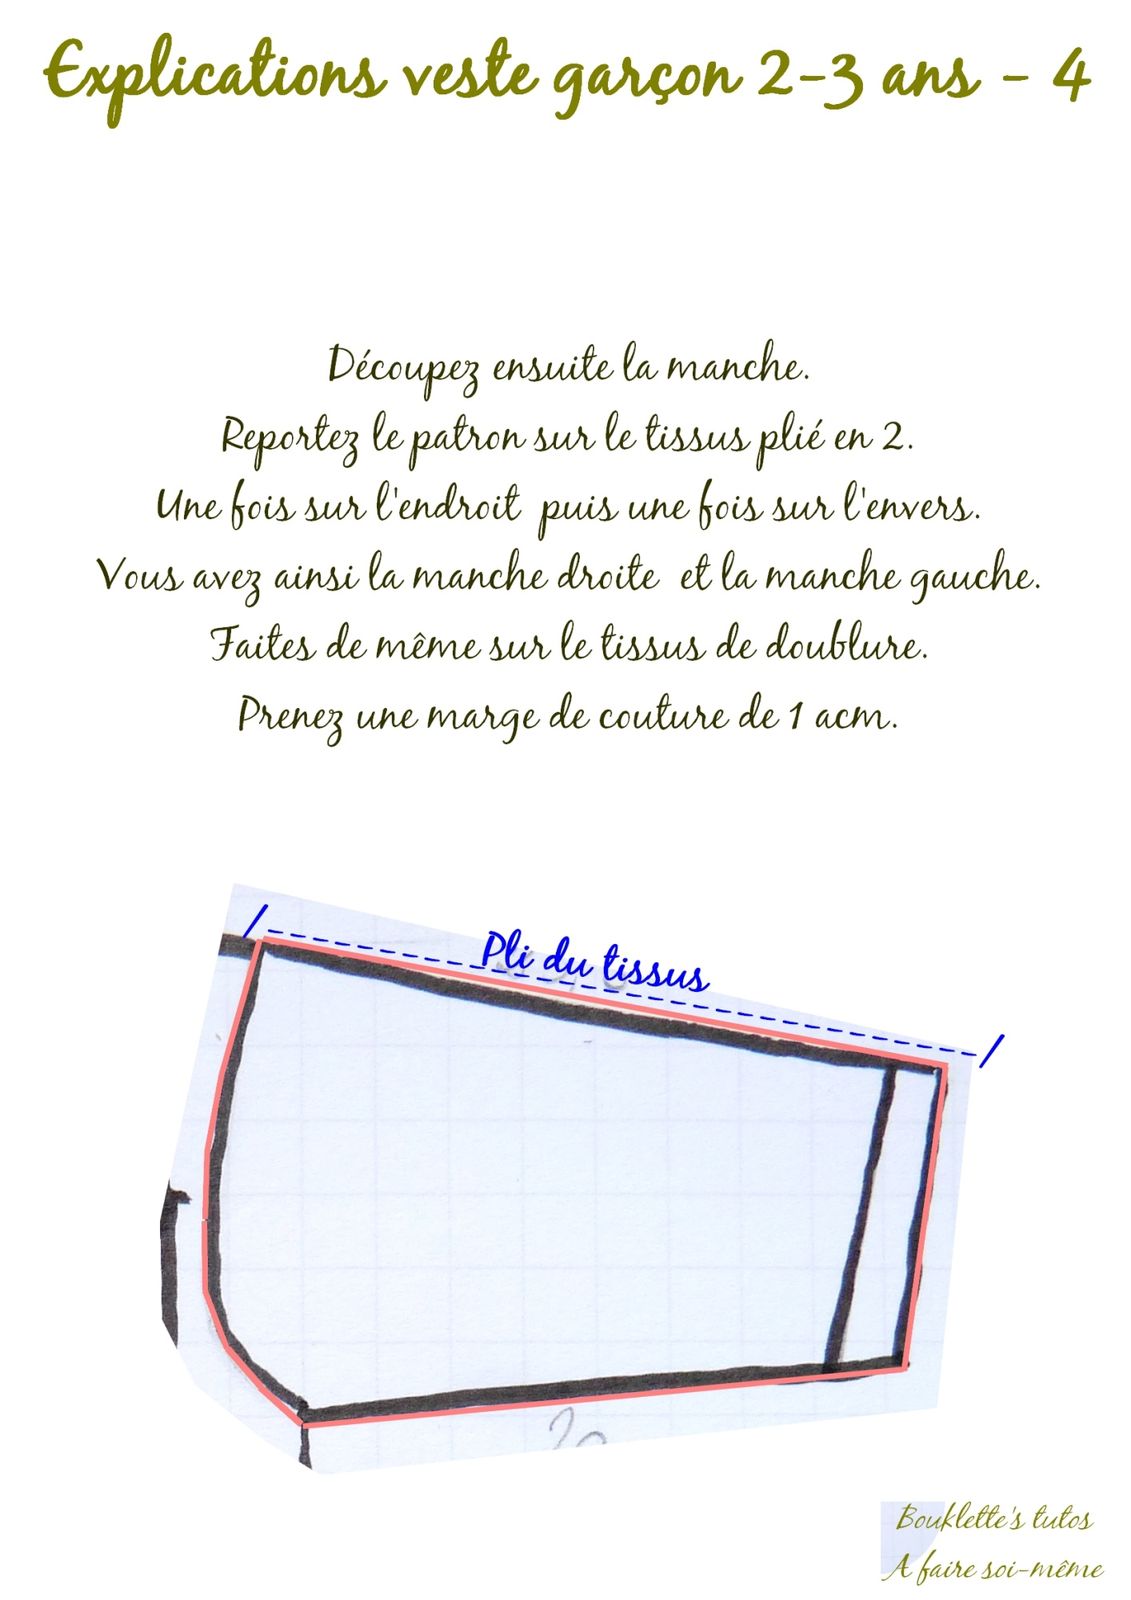 Explications veste garçon 2-3 ans - 4
Découpez ensuite la manche.
Reportez le patron sur le tissus plié en 2.
Une fois sur l'endroit puis une fois sur l'envers.
Vous avez ainsi la manche droite et la manche gauche.
Faites de même sur le tissus de doublure.
Prenez une marge de couture de 1 acm.
Pli du tissus
Bouklette's tutos
A faire soi-même